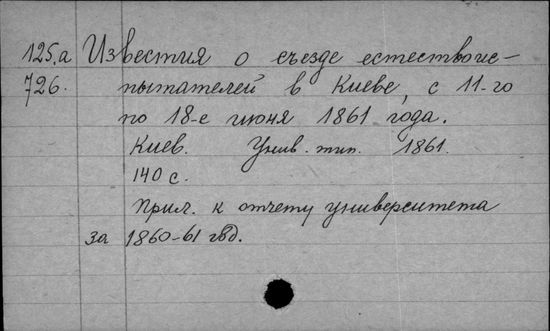 125.а Известия о съезде естествоис-
726. пытателей в Киеве, с 11-го
по 18-е июня 1861 года.
Киев. Унив. тип. 1861.
140 с.
Прил. к отчету университета
за 1860-61 гвд.